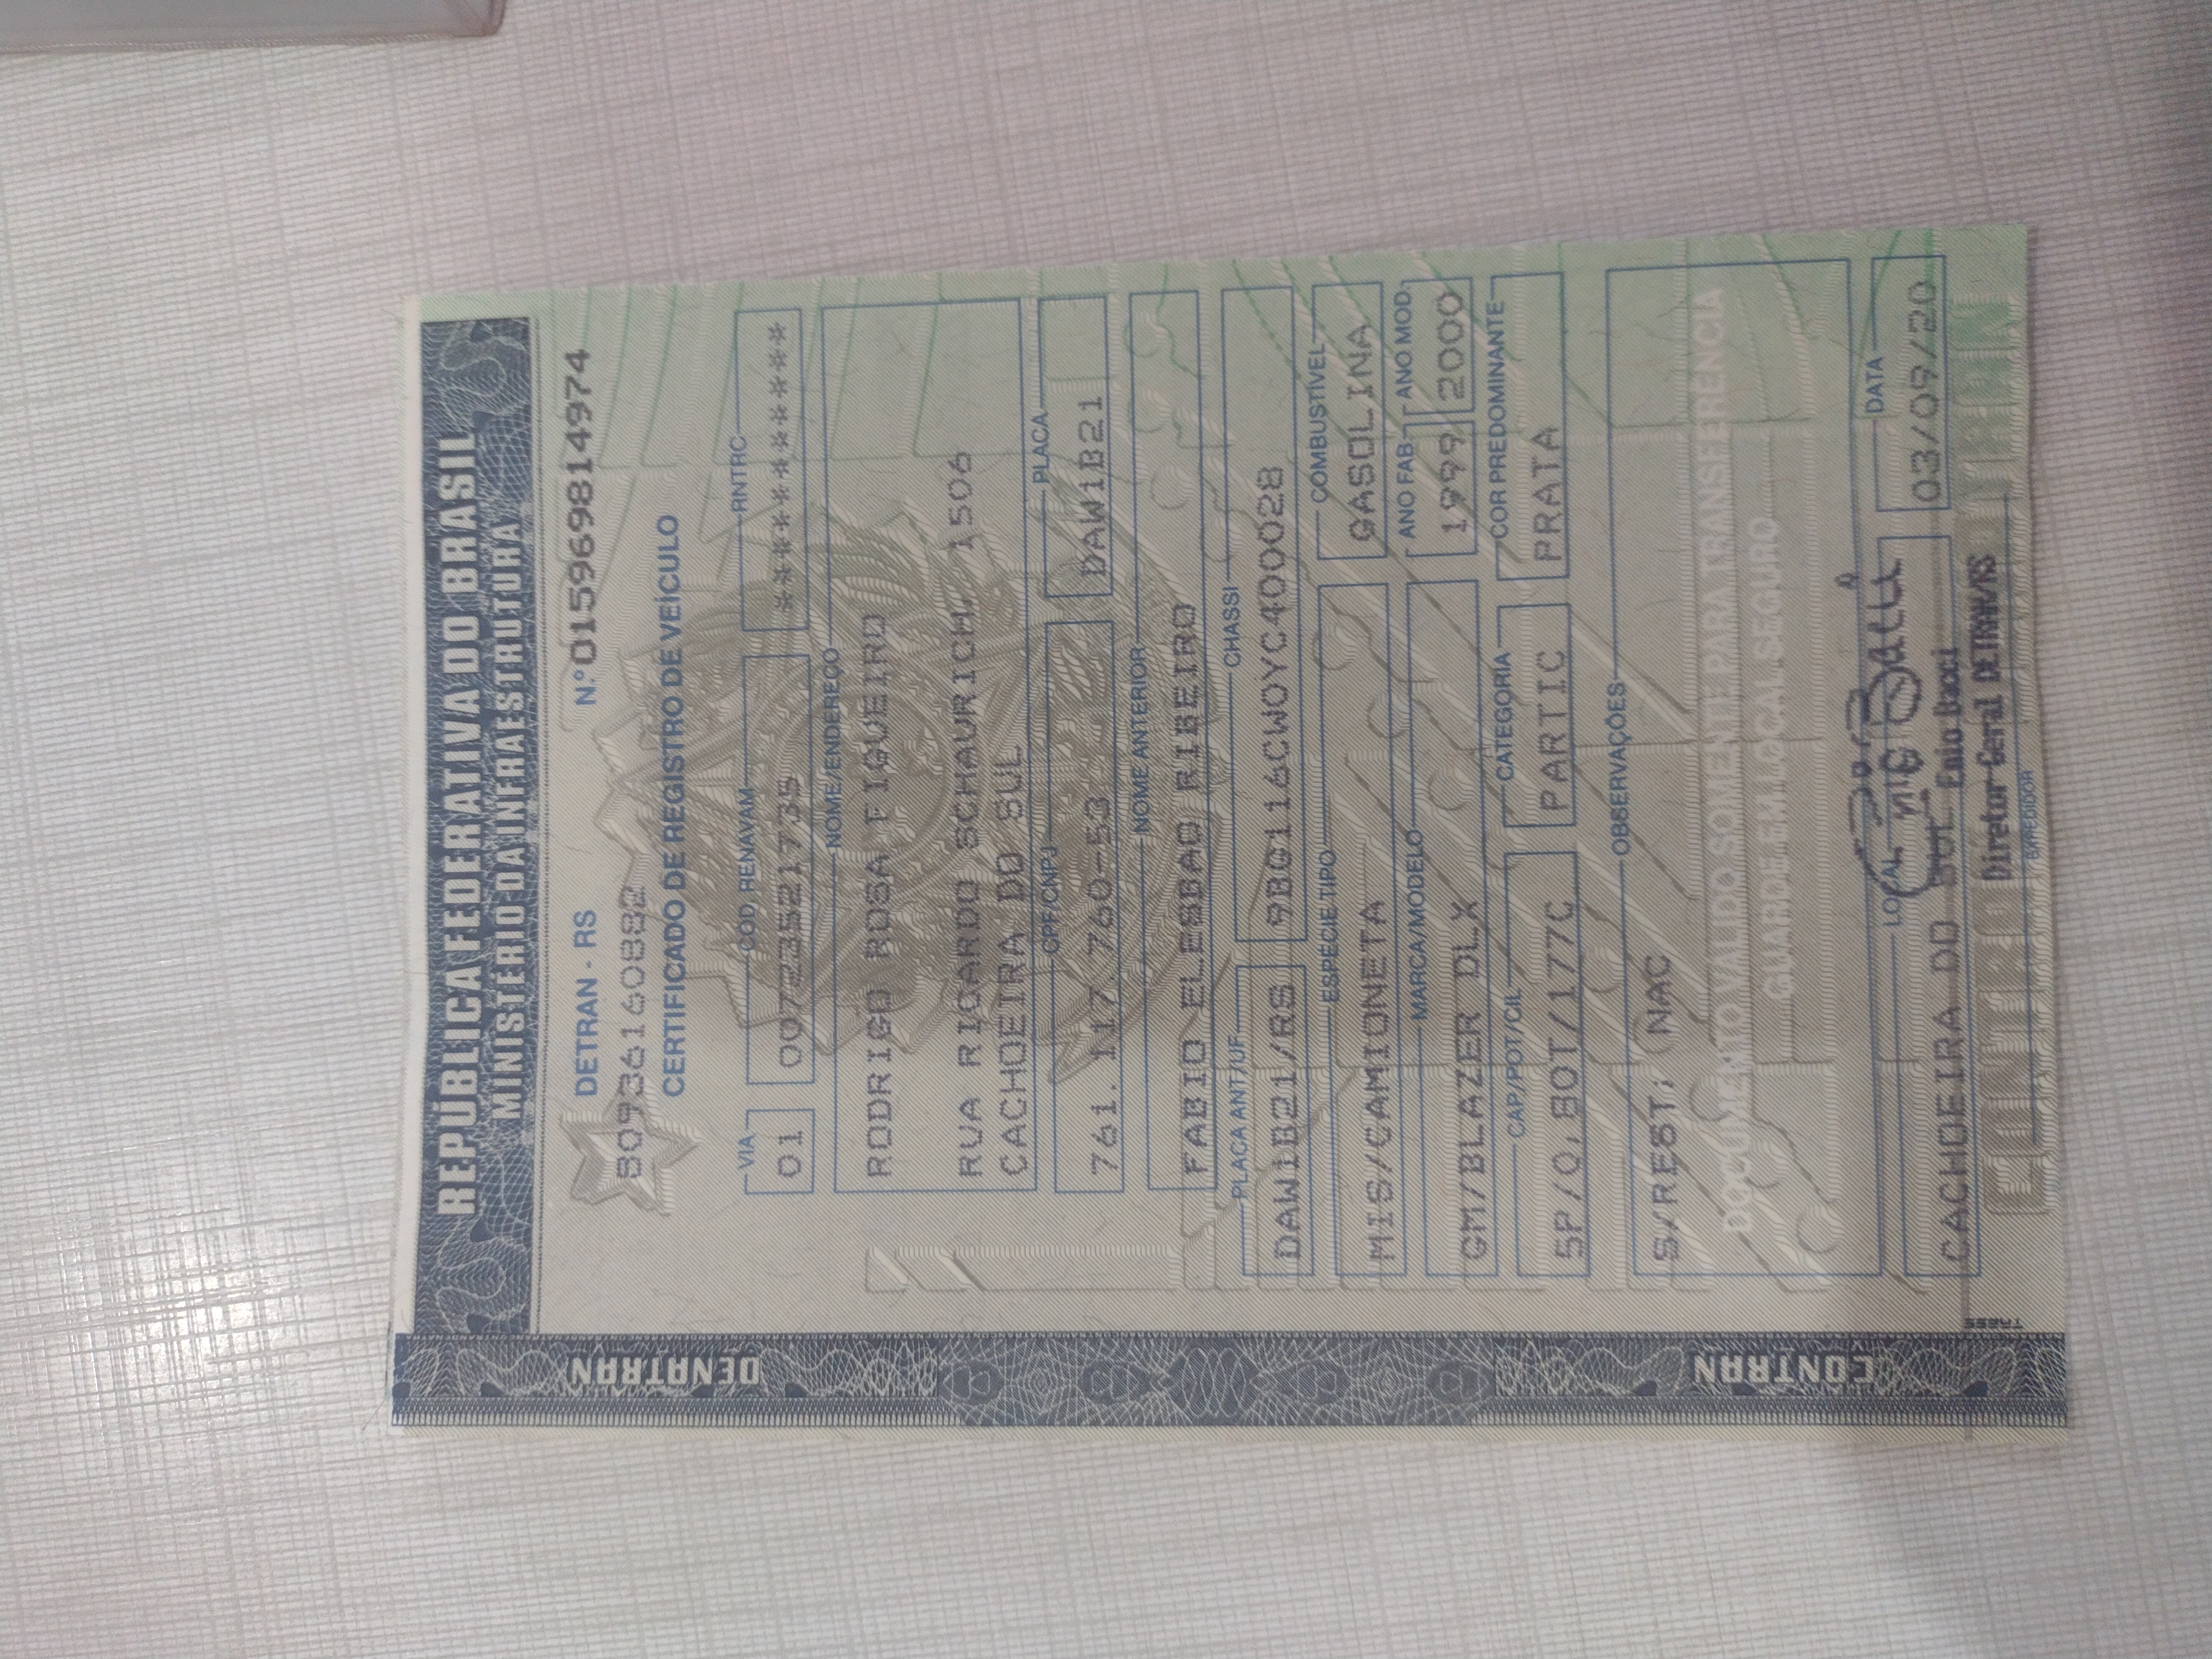 REPÚBLICA FEDERATIVA DO BRASIL
MINISTÉRIO DA INFRAESTRUTURA
DETRAN - RS
N.º 015969814974
80936160882
CERTIFICADO DE REGISTRO DE VEÍCULO
VIA
COD. RENAVAM
RNTRC
01
00723521735
NOME/ENDEREÇO
RODRIGO ROSA FIGUEIRO
RUA RICARDO SCHAURICH, 1506
CACHOEIRA DO SUL
CPF/CNPJ
PLACA
761.117.760-53
DAW1B21
NOME ANTERIOR
FABIO ELESBAO RIBEIRO
PLACA ANT/UF
CHASSI
DAW1B21/RS
9BG116CW0YC400028
ESPECIE TIPO
COMBUSTÍVEL
MIS/CAMIONETA
GASOLINA
MARCA/MODELO
ANO FAB
ANO MOD.
GM/BLAZER DLX
1999
2000
CAP/POT/CIL
CATEGORIA
COR PREDOMINANTE
5P/0,80T/177C
PARTIC
PRATA
OBSERVAÇÕES
S/REST; NAC
DOCUMENTO VÁLIDO SOMENTE PARA TRANSFERÊNCIA
GUARDE EM LOCAL SEGURO
LOCAL
DATA
CACHOEIRA DO SUL
03/09/20
Enio Bacci
Diretor-Geral DETRAN/RS
DENATRAN
CONTRAN